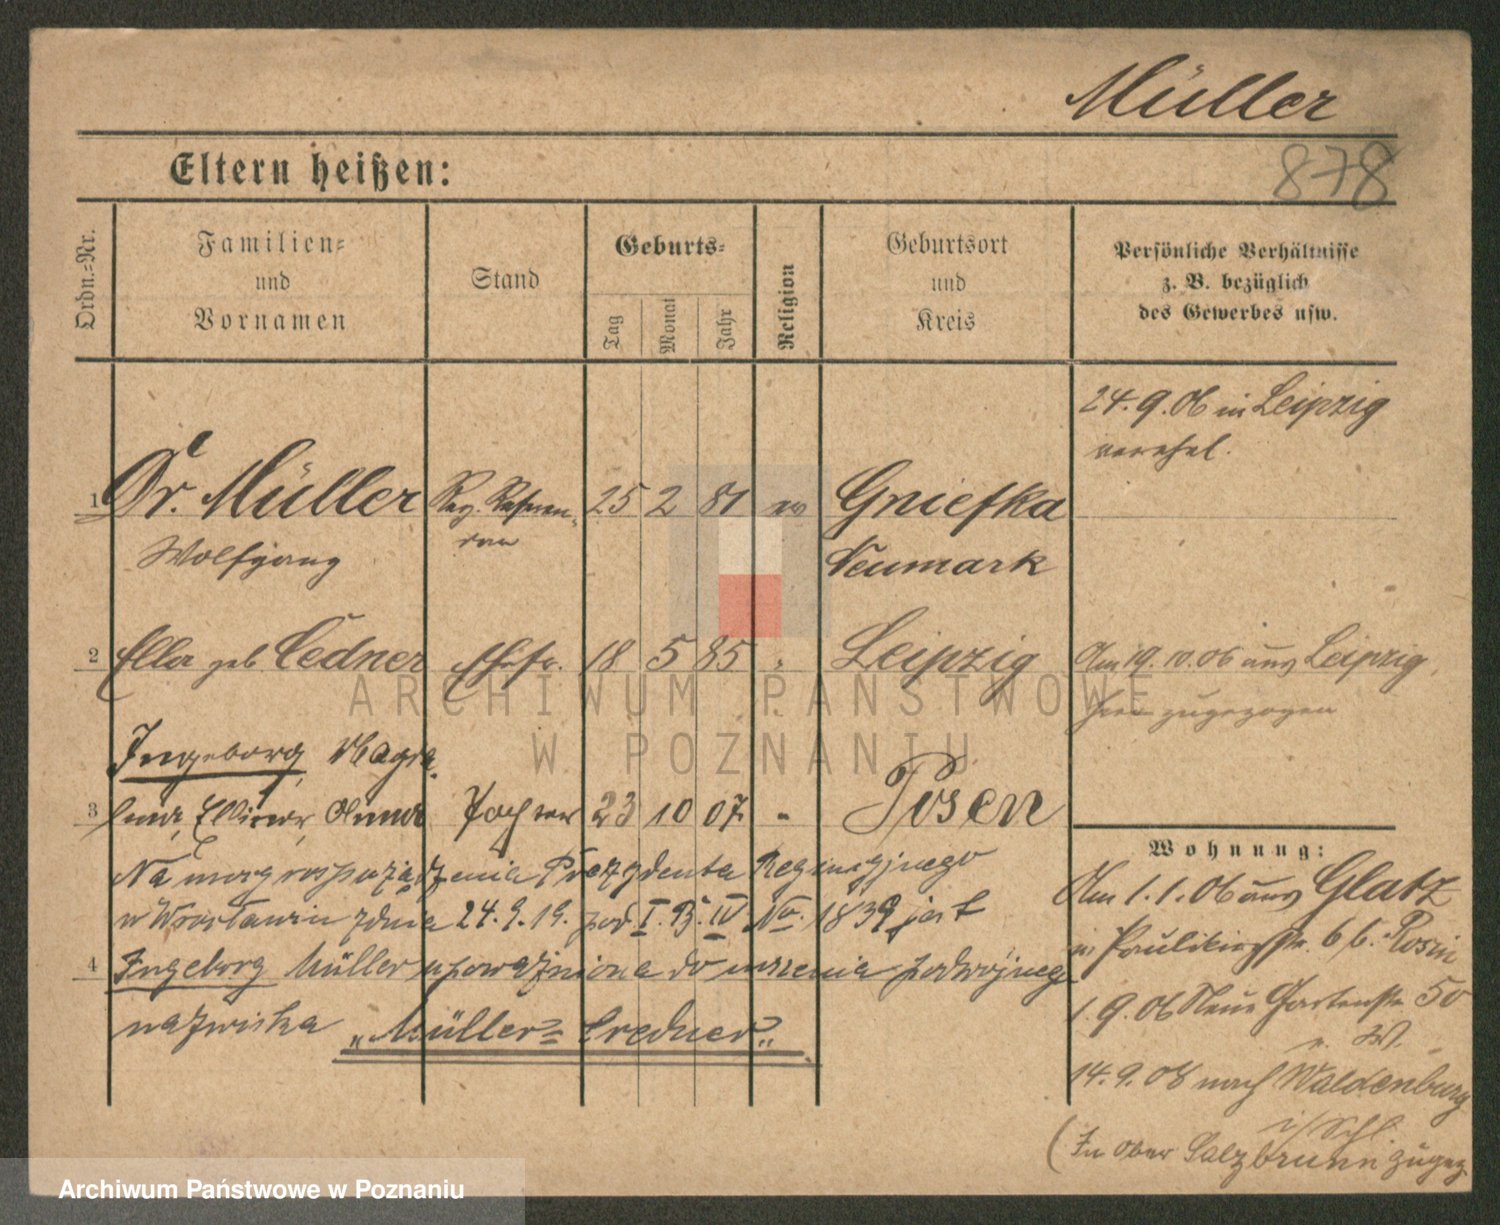 Müller
878
Eltern heißen:
Ordn.-Nr.
Familien-
und
Vornamen
Stand
Geburts-
Tag
Monat
Jahr
Religion
Geburtsort
und
Kreis
Persönliche Verhältnisse
z. B. bezüglich
des Gewerbes usw.
24. 9. 06 in Leipzig
verehel.
1 Dr. Müller Reg. Referen- 25 2 81 ev Gniefka
Wolfgang dar Neumark
2 Ella geb Credner Ehefr. 18 5 85 " Leipzig
Am 19. 10. 06 aus Leipzig,
hier zugezogen
Ingeborg Magda-
3 lena, Elinor, Anna Tochter 23 10 07 " Posen
Na mocy rozporządzenia Prezydenta Regencyjnego
w Wrocławiu z dnia 24. 9. 19. pod I. 93. IV No. 1839 jest
4 Ingeborg Müller upoważniona do noszenia podwójnego
nazwiska „Müller=Credner".
Wohnung:
Am 1. 1. 06 aus Glatz
n. Paulikirchstr. 6 b. Rosin
1. 9. 06 Neue Gartenstr 50
b. W.
14. 9. 08 nach Waldenburg
i/Schl.
(In Ober Salzbrunn zugez
ARCHIWUM PAŃSTWOWE
W POZNANIU
Archiwum Państwowe w Poznaniu